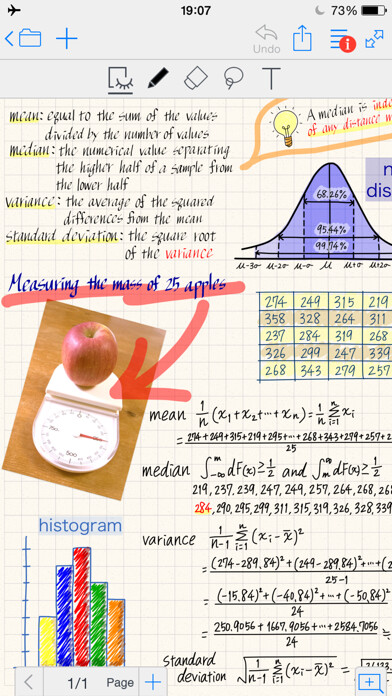 19:07
73%
Undo
mean: equal to the sum of the values
divided by the number of values
median: the numerical value separating
the higher half of a sample from
the lower half
variance: the average of the squared
differences from the mean
standard deviation: the square root
of the variance
A median is
of any distance
68.26%
95.44%
99.74%
μ-3σ μ-2σ μ-σ μ μ+σ μ+2σ
Measuring the mass of 25 apples
274 249 315 219
358 328 264 311
237 284 319 268
326 299 247 339
268 343 279 257
mean 1/n (x₁+x₂+⋯+xₙ)=1/n Σᵢ₌₁ⁿ xᵢ
= 274+249+315+219+295+⋯+268+343+279+257+2
25
median ∫₋∞ᵐ dF(x)≥1/2 and ∫ₘ∞ dF(x)≥1/2
219, 237, 239, 247, 249, 257, 264, 268, 268
284, 290, 295, 299, 311, 315, 319, 326, 328, 339
histogram
variance 1/(n-1) Σᵢ₌₁ⁿ (xᵢ-x̄)²
= (274-289.84)²+(249-289.84)²+⋯+(
25-1
= (-15.84)²+(-40.84)²+⋯+(-50.84)²
24
= 250.9056+1667.9056+⋯+2584.7056
24
standard
deviation √(1/(n-1) Σᵢ₌₁ⁿ (xᵢ-x̄)²) =
1/1 Page